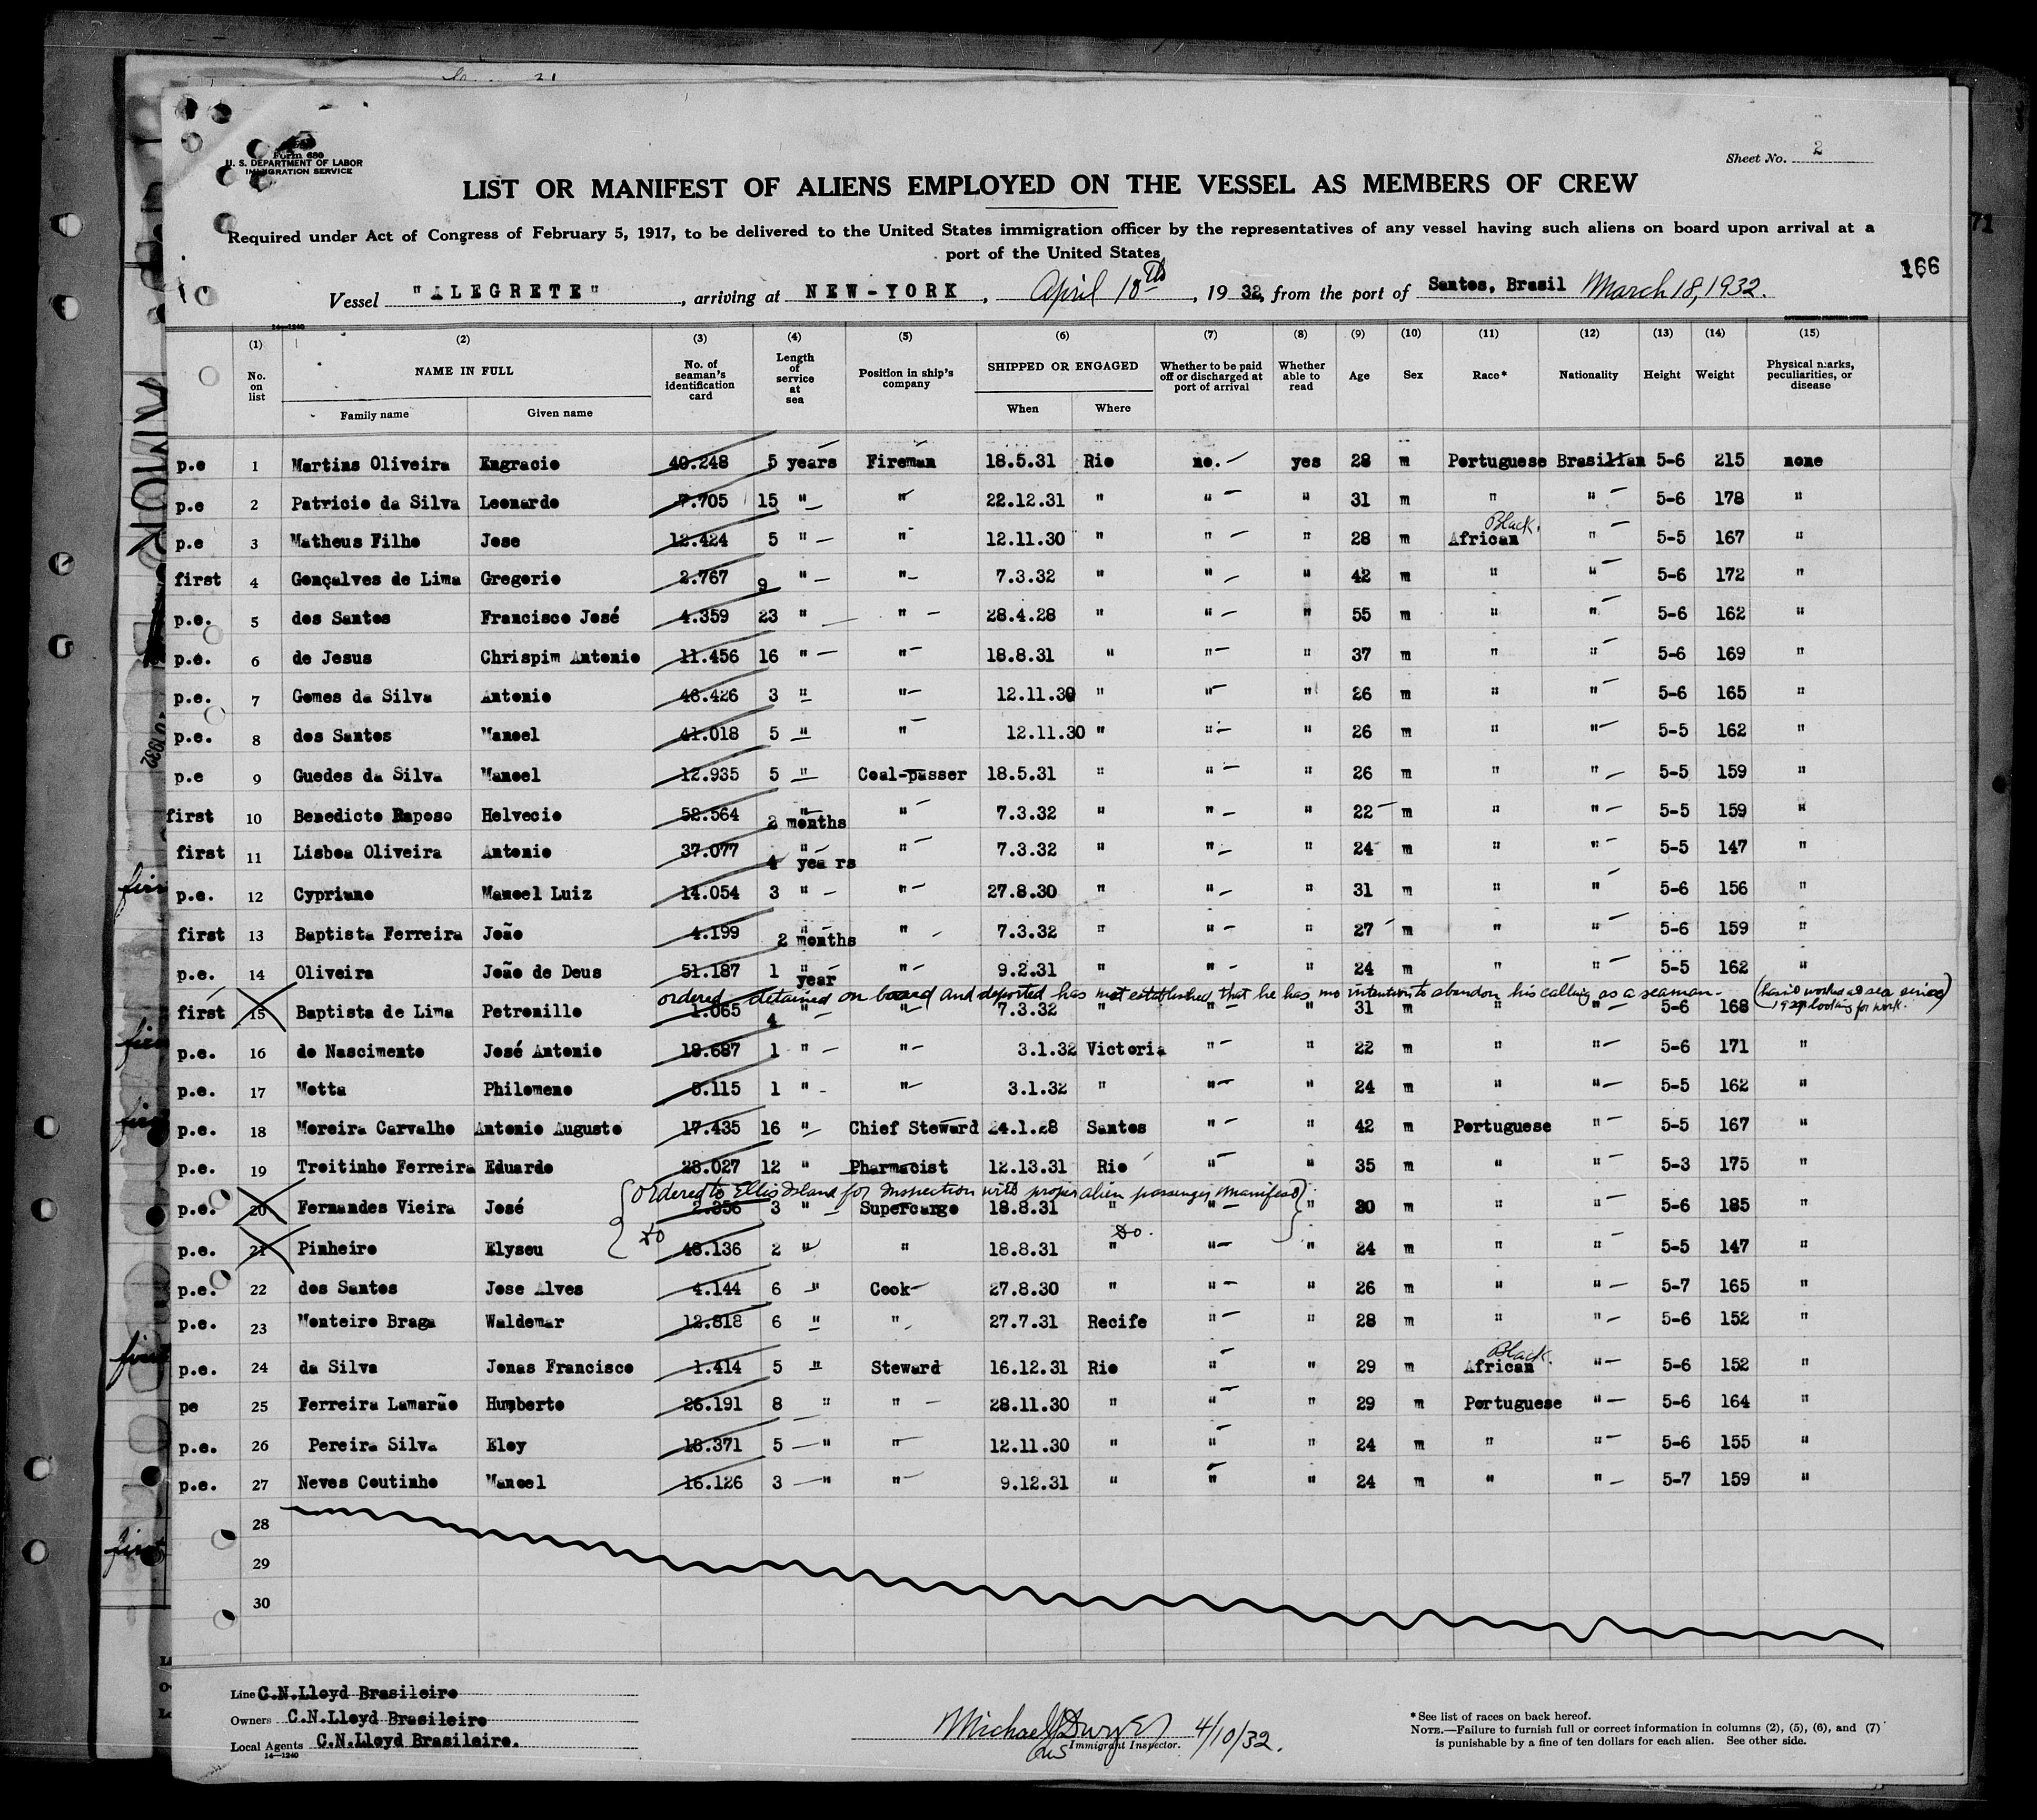 Sheet No. 2
Form 680
U. S. DEPARTMENT OF LABOR
IMMIGRATION SERVICE
LIST OR MANIFEST OF ALIENS EMPLOYED ON THE VESSEL AS MEMBERS OF CREW
Required under Act of Congress of February 5, 1917, to be delivered to the United States immigration officer by the representatives of any vessel having such aliens on board upon arrival at a
port of the United States
166
Vessel "ALEGRETE", arriving at NEW-YORK, April 10th, 1932, from the port of Santos, Brasil March 18, 1932.
14—1240
(1) (2) (3) (4) (5) (6) (7) (8) (9) (10) (11) (12) (13) (14) (15)
No. on list NAME IN FULL Family name Given name No. of seaman's identification card Length of service at sea Position in ship's company SHIPPED OR ENGAGED When Where Whether to be paid off or discharged at port of arrival Whether able to read Age Sex Race* Nationality Height Weight Physical marks, peculiarities, or disease
p.e 1 Martins Oliveira Engracio 40.248 5 years Fireman 18.5.31 Rio no. yes 28 m Portuguese Brasilian 5-6 215 none
p.e 2 Patricio da Silva Leonardo 7.705 15 " " 22.12.31 " " " 31 m " " 5-6 178 "
p.e 3 Matheus Filho Jose 12.424 5 " " 12.11.30 " " " 28 m African Black. " 5-5 167 "
first 4 Gonçalves de Lima Gregorio 2.767 9 " " 7.3.32 " " " 42 m " " 5-6 172 "
p.e. 5 dos Santos Francisco José 4.359 23 " " 28.4.28 " " " 55 m " " 5-6 162 "
p.e. 6 de Jesus Chrispim Antonio 11.456 16 " " 18.8.31 " " " 37 m " " 5-6 169 "
p.e. 7 Gomes da Silva Antonio 46.426 3 " " 12.11.30 " " " 26 m " " 5-6 165 "
p.e. 8 dos Santos Manoel 41.018 5 " " 12.11.30 " " " 26 m " " 5-5 162 "
p.e 9 Guedes da Silva Manoel 12.935 5 " Coal-passer 18.5.31 " " " 26 m " " 5-5 159 "
first 10 Benedicto Raposo Helvecio 52.564 2 months " 7.3.32 " " " 22 m " " 5-5 159 "
first 11 Lisboa Oliveira Antonio 37.077 4 years " 7.3.32 " " " 24 m " " 5-5 147 "
p.e. 12 Cypriano Manoel Luiz 14.054 3 " " 27.8.30 " " " 31 m " " 5-6 156 "
first 13 Baptista Ferreira João 4.199 2 months " 7.3.32 " " " 27 m " " 5-6 159 "
p.e. 14 Oliveira João de Deus 51.187 1 year " 9.2.31 " " " 24 m " " 5-5 162 "
ordered detained on board and deported has not established that he has no intention to abandon his calling as a seaman. (hasn't worked at sea since
first 15 Baptista de Lima Petronillo 1.065 4 " " 7.3.32 " " " 31 m " " 5-6 168 looking for work.)
p.e. 16 do Nascimento José Antonio 18.687 1 " " 3.1.32 Victoria " " 22 m " " 5-6 171 "
p.e. 17 Motta Philomeno 8.115 1 " " 3.1.32 " " " 24 m " " 5-5 162 "
p.e. 18 Moreira Carvalho Antonio Augusto 17.435 16 " Chief Steward 24.1.28 Santos " " 42 m Portuguese " 5-5 167 "
p.e. 19 Troitinho Ferreira Eduardo 28.027 12 " Pharmacist 12.13.31 Rio " " 35 m " " 5-3 175 "
Ordered to Ellis Island for Inspection with proper alien passenger manifest
p.e. 20 Fernandes Vieira José 2.356 3 " Supercargo 18.8.31 " " " 30 m " " 5-6 185 "
Do Do.
p.e. 21 Pinheiro Elyseu 48.136 2 " " 18.8.31 " " " 24 m " " 5-5 147 "
p.e. 22 dos Santos Jose Alves 4.144 6 " Cook 27.8.30 " " " 26 m " " 5-7 165 "
p.e. 23 Monteiro Braga Waldemar 12.818 6 " " 27.7.31 Recife " " 28 m " " 5-6 152 "
p.e. 24 da Silva Jonas Francisco 1.414 5 " Steward 16.12.31 Rio " " 29 m African Black. " 5-6 152 "
pe 25 Ferreira Lamarão Humberto 26.191 8 " " 28.11.30 " " " 29 m Portuguese " 5-6 164 "
p.e. 26 Pereira Silva Eloy 18.371 5 " " 12.11.30 " " " 24 m " " 5-6 155 "
p.e. 27 Neves Coutinho Manoel 16.126 3 " " 9.12.31 " " " 24 m " " 5-7 159 "
28
29
30
Line C.N.Lloyd Brasileiro
Owners C.N.Lloyd Brasileiro
Local Agents C.N.Lloyd Brasileiro.
14—1240
Michael J Dwyer 4/10/32.
Immigrant Inspector.
*See list of races on back hereof.
NOTE.—Failure to furnish full or correct information in columns (2), (5), (6), and (7)
is punishable by a fine of ten dollars for each alien. See other side.